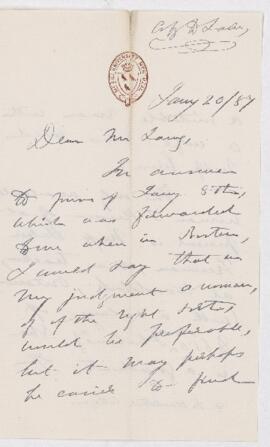 Jany 20/87
Dear Mr Lang,
In answer
to yours of Jany 8th,
which was forwarded
me when in Boston,
I would say that in
my judgment a woman,
if of the right sort,
would be preferable,
but it may perhaps
be easier to find